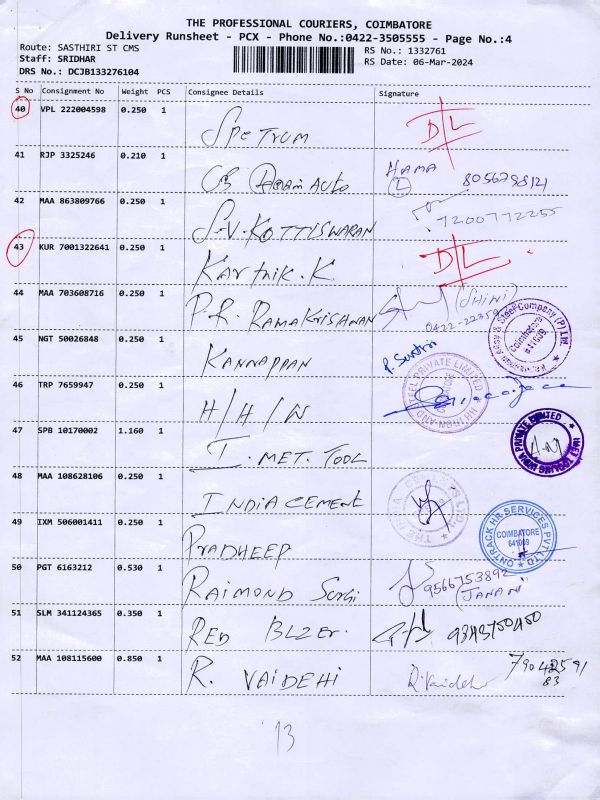 THE PROFESSIONAL COURIERS, COIMBATORE
Delivery Runsheet - PCX - Phone No.:0422-3505555 - Page No.:4
Route: SASTHIRI ST CMS RS No.: 1332761
Staff: SRIDHAR RS Date: 06-Mar-2024
DRS No.: DCJB133276104
S No Consignment No Weight PCS Consignee Details Signature
40 VPL 222004598 0.250 1 SPETRUM D/L
41 RJP 3325246 0.210 1 Auto HAMA 8056788121
42 MAA 863809766 0.250 1 S.V. KOTTISWARAN 7200772255
43 KUR 7001322641 0.250 1 Karthik.K D/L
44 MAA 703608716 0.250 1 P.R. RAMAKRISHNAN (SHINI)
0422-22359
45 NGT 50026848 0.250 1 KANNAPPAN
46 TRP 7659947 0.250 1 H/H/W
47 SPB 10170002 1.160 1 I. MET. TOOL
48 MAA 108628106 0.250 1 INDIA CEMENT
49 IXM 506001411 0.250 1 PRADHEEP ONTRACK HR SERVICES PVT LTD
COIMBATORE
641009
50 PGT 6163212 0.530 1 RAIMOND 9566753892
(JANANI)
51 SLM 341124365 0.350 1 RED BLZER. 9345750450
52 MAA 108115600 0.850 1 R. VAIDEHI R.Vaidehi 79042591
83
13